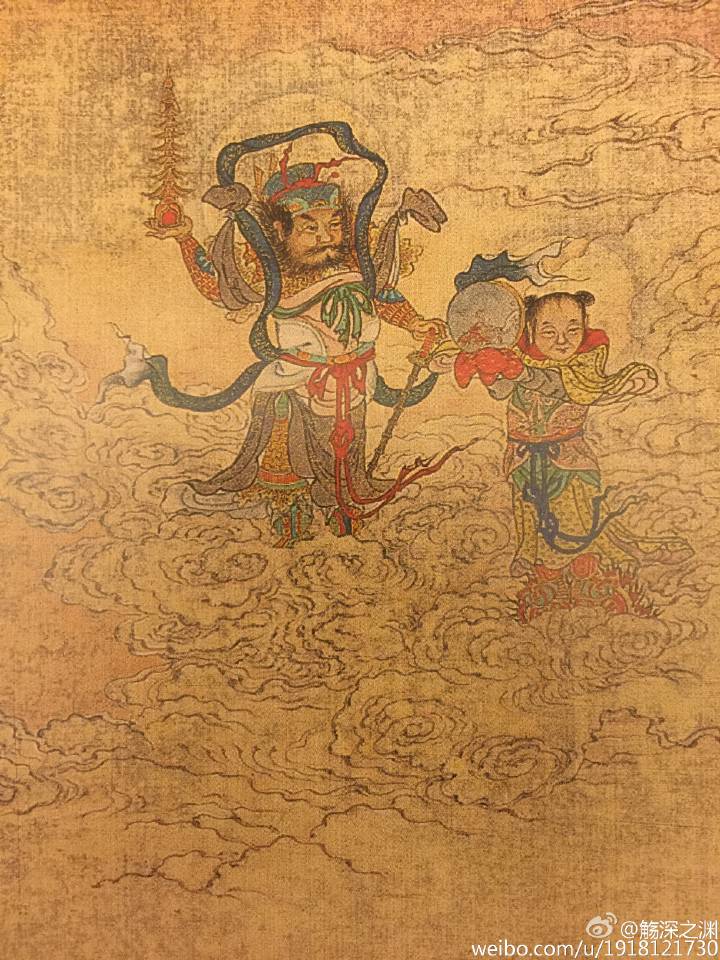 @觞深之渊
weibo.com/u/1918121730